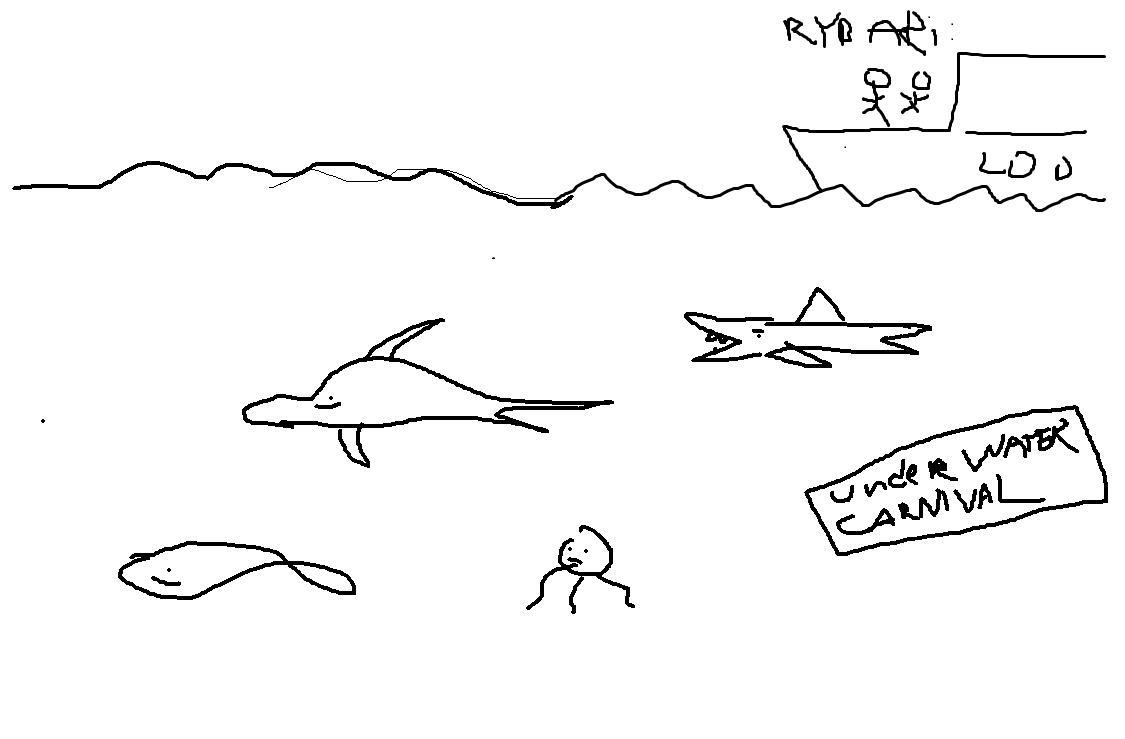 RYBARI
LOD
UndeR WATER
CARNIVAL